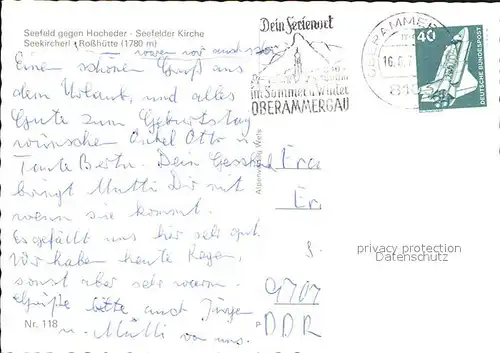 Seefeld gegen Hocheder - Seefelder Kirche
Seekircherl, Roßhütte (1780 m)
waren wir auch schon
Einen schönen Gruß aus
dem Urlaub, und alles
Gute zum Geburtstag
wünschen Onkel Otto u.
Tante Berta. Dein Geschenk
bringt Mutti Dir mit
wenn sie kommt.
Es gefällt uns hier sehr gut.
Wir haben heute Regen,
sonst aber sehr warm.
Grüße bitte auch Jürgen
u. Mutti von uns.
Nr. 118
Alpenverlag Wels
Dein Ferienort
im Sommer u. Winter
OBERAMMERGAU
OBERAMMER
16.
810
40
DEUTSCHE BUNDESPOST
Frau
Er
S
9707
DDR
privacy protection
Datenschutz